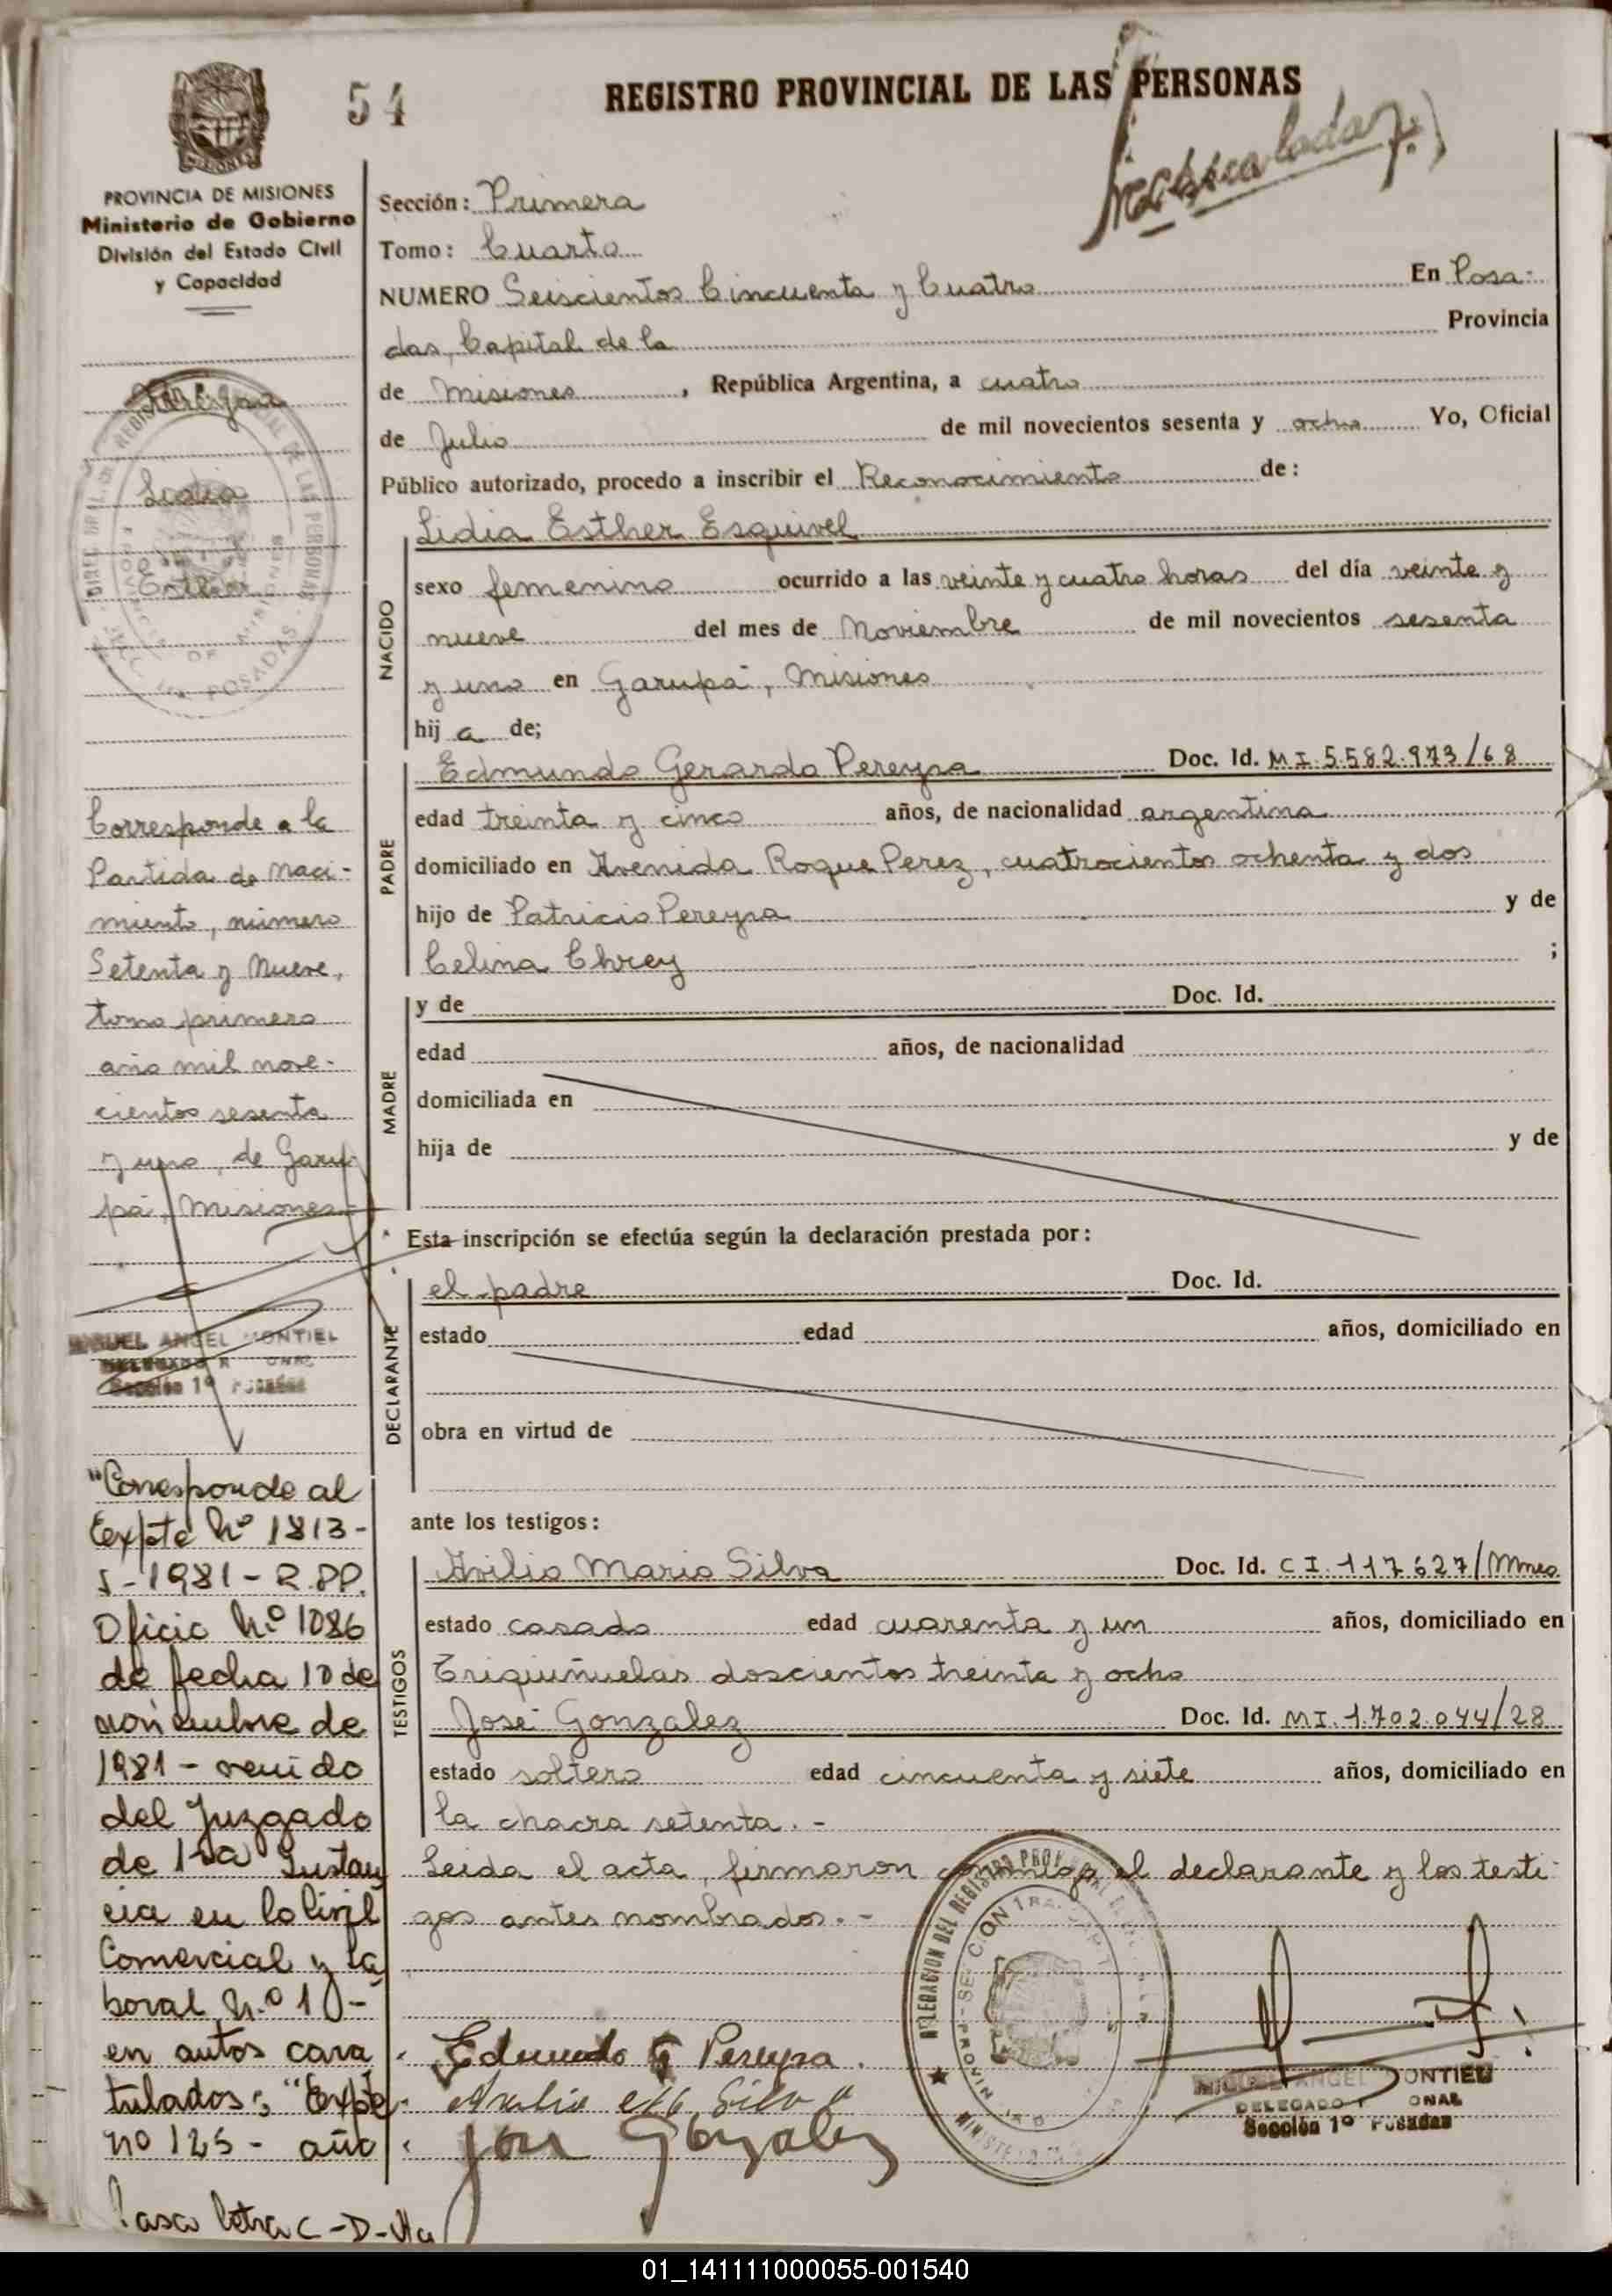 54
REGISTRO PROVINCIAL DE LAS PERSONAS
PROVINCIA DE MISIONES
Ministerio de Gobierno
División del Estado Civil
y Capacidad
Sección: Primera
Tomo: Cuarto
NUMERO Seiscientos Cincuenta y Cuatro En Posa-
das, Capital de la Provincia
de Misiones, República Argentina, a cuatro
de Julio de mil novecientos sesenta y ocho Yo, Oficial
Público autorizado, procedo a inscribir el Reconocimiento de:
Lidia Esther Esquivel
NACIDO
sexo femenino ocurrido a las veinte y cuatro horas del día veinte y
nueve del mes de Noviembre de mil novecientos sesenta
y uno en Garupá, Misiones
hij a de;
PADRE
Edmundo Gerardo Pereyra Doc. Id. M I. 5.582.973/68
edad treinta y cinco años, de nacionalidad argentina
domiciliado en Avenida Roque Perez, cuatrocientos ochenta y dos
hijo de Patricio Pereyra y de
Celina Chrey ;
MADRE
y de Doc. Id.
edad años, de nacionalidad
domiciliada en
hija de y de
Esta inscripción se efectúa según la declaración prestada por:
DECLARANTE
el padre Doc. Id.
estado edad años, domiciliado en
obra en virtud de
ante los testigos:
TESTIGOS
Avilio Mario Silva Doc. Id. C I. 117.627/Mnes
estado casado edad cuarenta y un años, domiciliado en
Trigiuñuelas doscientos treinta y ocho
José Gonzalez Doc. Id. M I. 1.702.044/28
estado soltero edad cincuenta y siete años, domiciliado en
la chacra setenta. -
Leida el acta, firmaron conmigo el declarante y los testi-
gos antes nombrados. -
Edmundo G Pereyra
Silva
José Gonzalez
MIGUEL ANGEL MONTIEL
DELEGADO
Sección 1º Posadas
Pereyra
Lidia
Esther
Corresponde a la
Partida de Naci-
miento, número
Setenta y Nueve,
tomo primero
año mil nove-
cientos sesenta
y uno, de Garu-
pá, Misiones
MIGUEL ANGEL MONTIEL
DELEGADO
Sección 1º Posadas
"Corresponde al
Expte Nº 1813-
1981 - R.PP.
Oficio Nº 1086
de fecha 10 de
noviembre de
1981 - venido
del Juzgado
de 1ra Instan
cia en lo Civil
Comercial y La
boral N.º 1 -
en autos cara
tulados: "Expte
nº 125 - año
Pasa letra C - D -
01_141111000055-001540